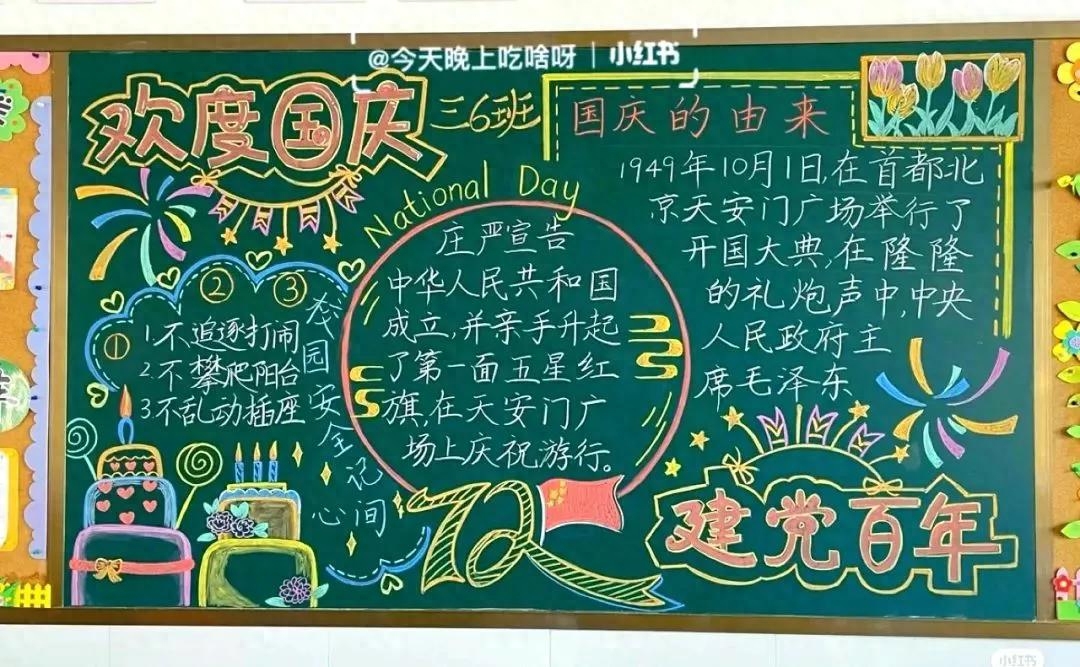 @今天晚上吃啥呀 | 小红书
欢度国庆
三6班
National Day
② ③
①
1.不追逐打闹
2.不攀爬阳台
3.不乱动插座
校园安全记
心间
国庆的由来
1949年10月1日,在首都北
京天安门广场举行了
开国大典,在隆隆
的礼炮声中,中央
人民政府主
席毛泽东
庄严宣告
中华人民共和国
成立,并亲手升起
了第一面五星红
旗,在天安门广
场上庆祝游行。
72
建党百年
小红书